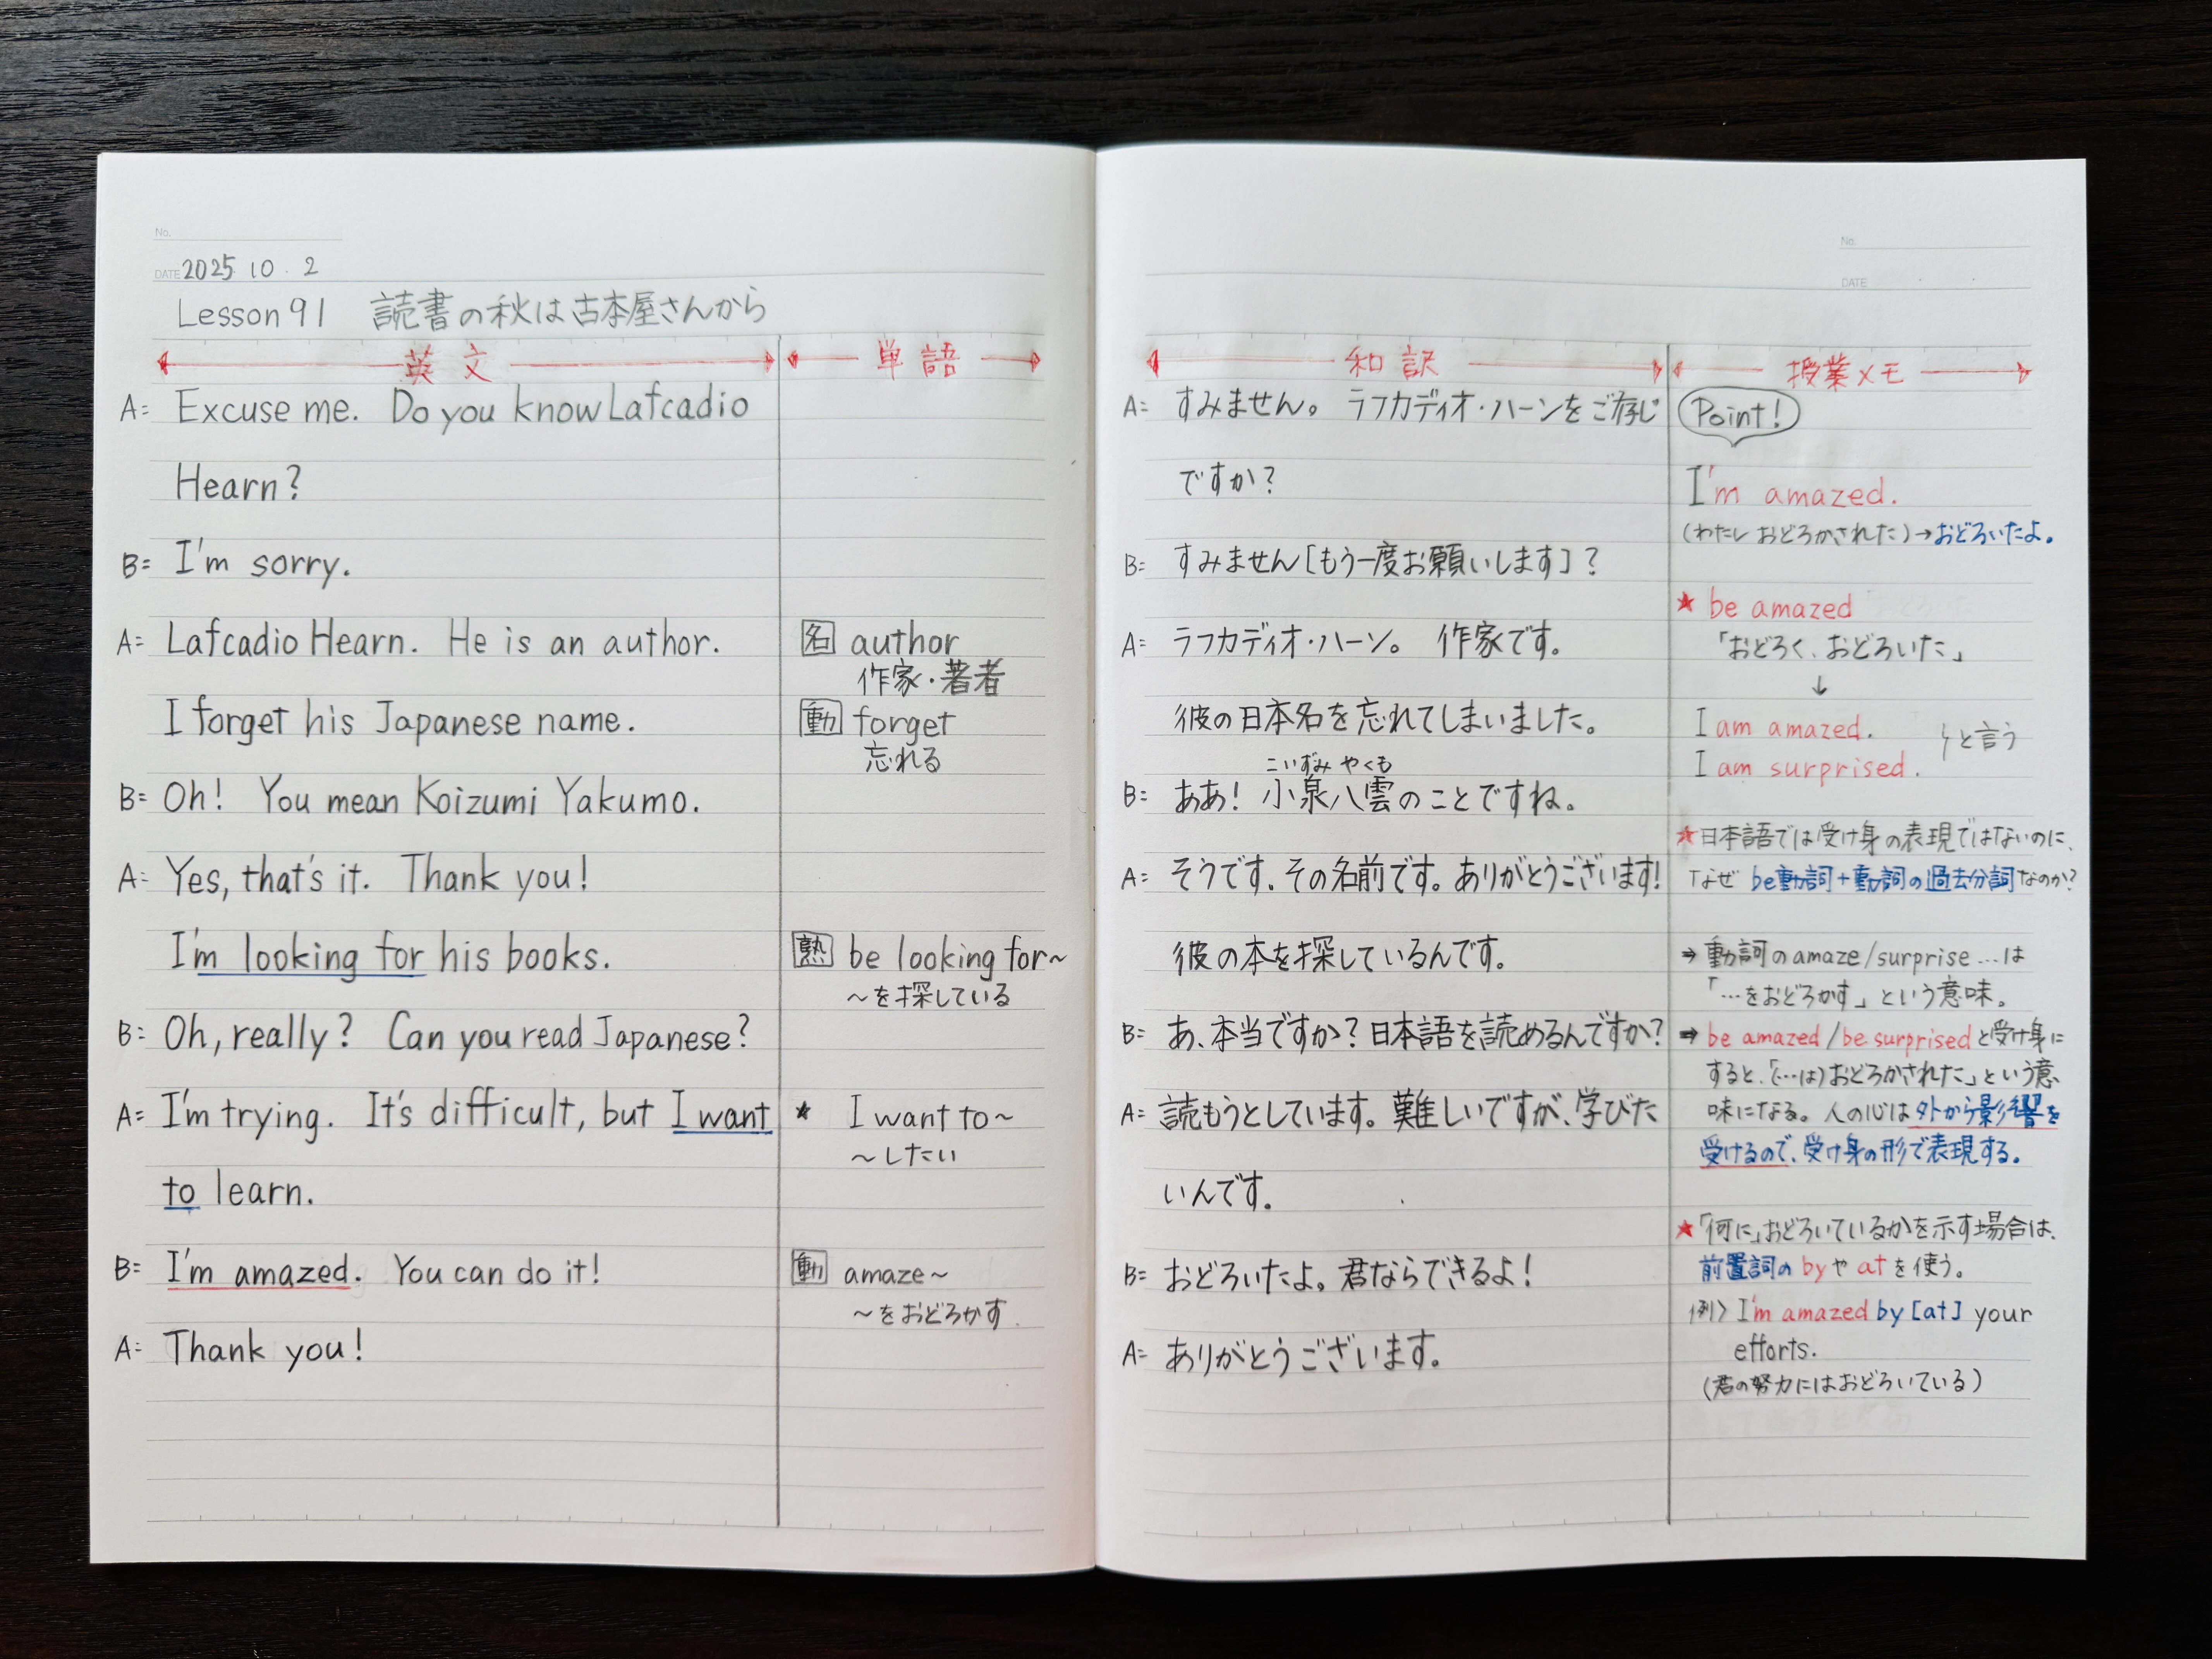 No.
DATE 2025 10 . 2
Lesson 91 読書の秋は古本屋さんから
英文
単語
A= Excuse me. Do you know Lafcadio
Hearn?
B= I'm sorry.
A= Lafcadio Hearn. He is an author.
名 author
作家・著者
I forget his Japanese name.
動 forget
忘れる
B= Oh! You mean Koizumi Yakumo.
A= Yes, that's it. Thank you!
I'm looking for his books.
熟 be looking for~
~を探している
B= Oh, really? Can you read Japanese?
A= I'm trying. It's difficult, but I want
★ I want to~
~したい
to learn.
B= I'm amazed. You can do it!
動 amaze~
~をおどろかす
A= Thank you!
No.
DATE
和訳
授業メモ
A= すみません。ラフカディオ・ハーンをご存じ
ですか?
B= すみません[もう一度お願いします]?
A= ラフカディオ・ハーン。作家です。
彼の日本名を忘れてしまいました。
こいずみ やくも
B= ああ! 小泉八雲のことですね。
A= そうです、その名前です。ありがとうございます!
彼の本を探しているんです。
B= あ、本当ですか?日本語を読めるんですか?
A= 読もうとしています。難しいですが、学びた
いんです。
B= おどろいたよ。君ならできるよ!
A= ありがとうございます。
Point!
I'm amazed.
(わたし おどろかされた)→おどろいたよ。
★ be amazed
「おどろく、おどろいた」
↓
I am amazed.
I am surprised.
と言う
★日本語では受け身の表現ではないのに、
なぜ be動詞+動詞の過去分詞なのか?
⇒ 動詞のamaze/surprise…は
「…をおどろかす」という意味。
⇒ be amazed/be surprisedと受け身に
すると、「(…は)おどろかされた」という意
味になる。人の心は外から影響を
受けるので、受け身の形で表現する。
★「何に」おどろいているかを示す場合は、
前置詞の by や at を使う。
例> I'm amazed by [at] your
efforts.
(君の努力にはおどろいている)